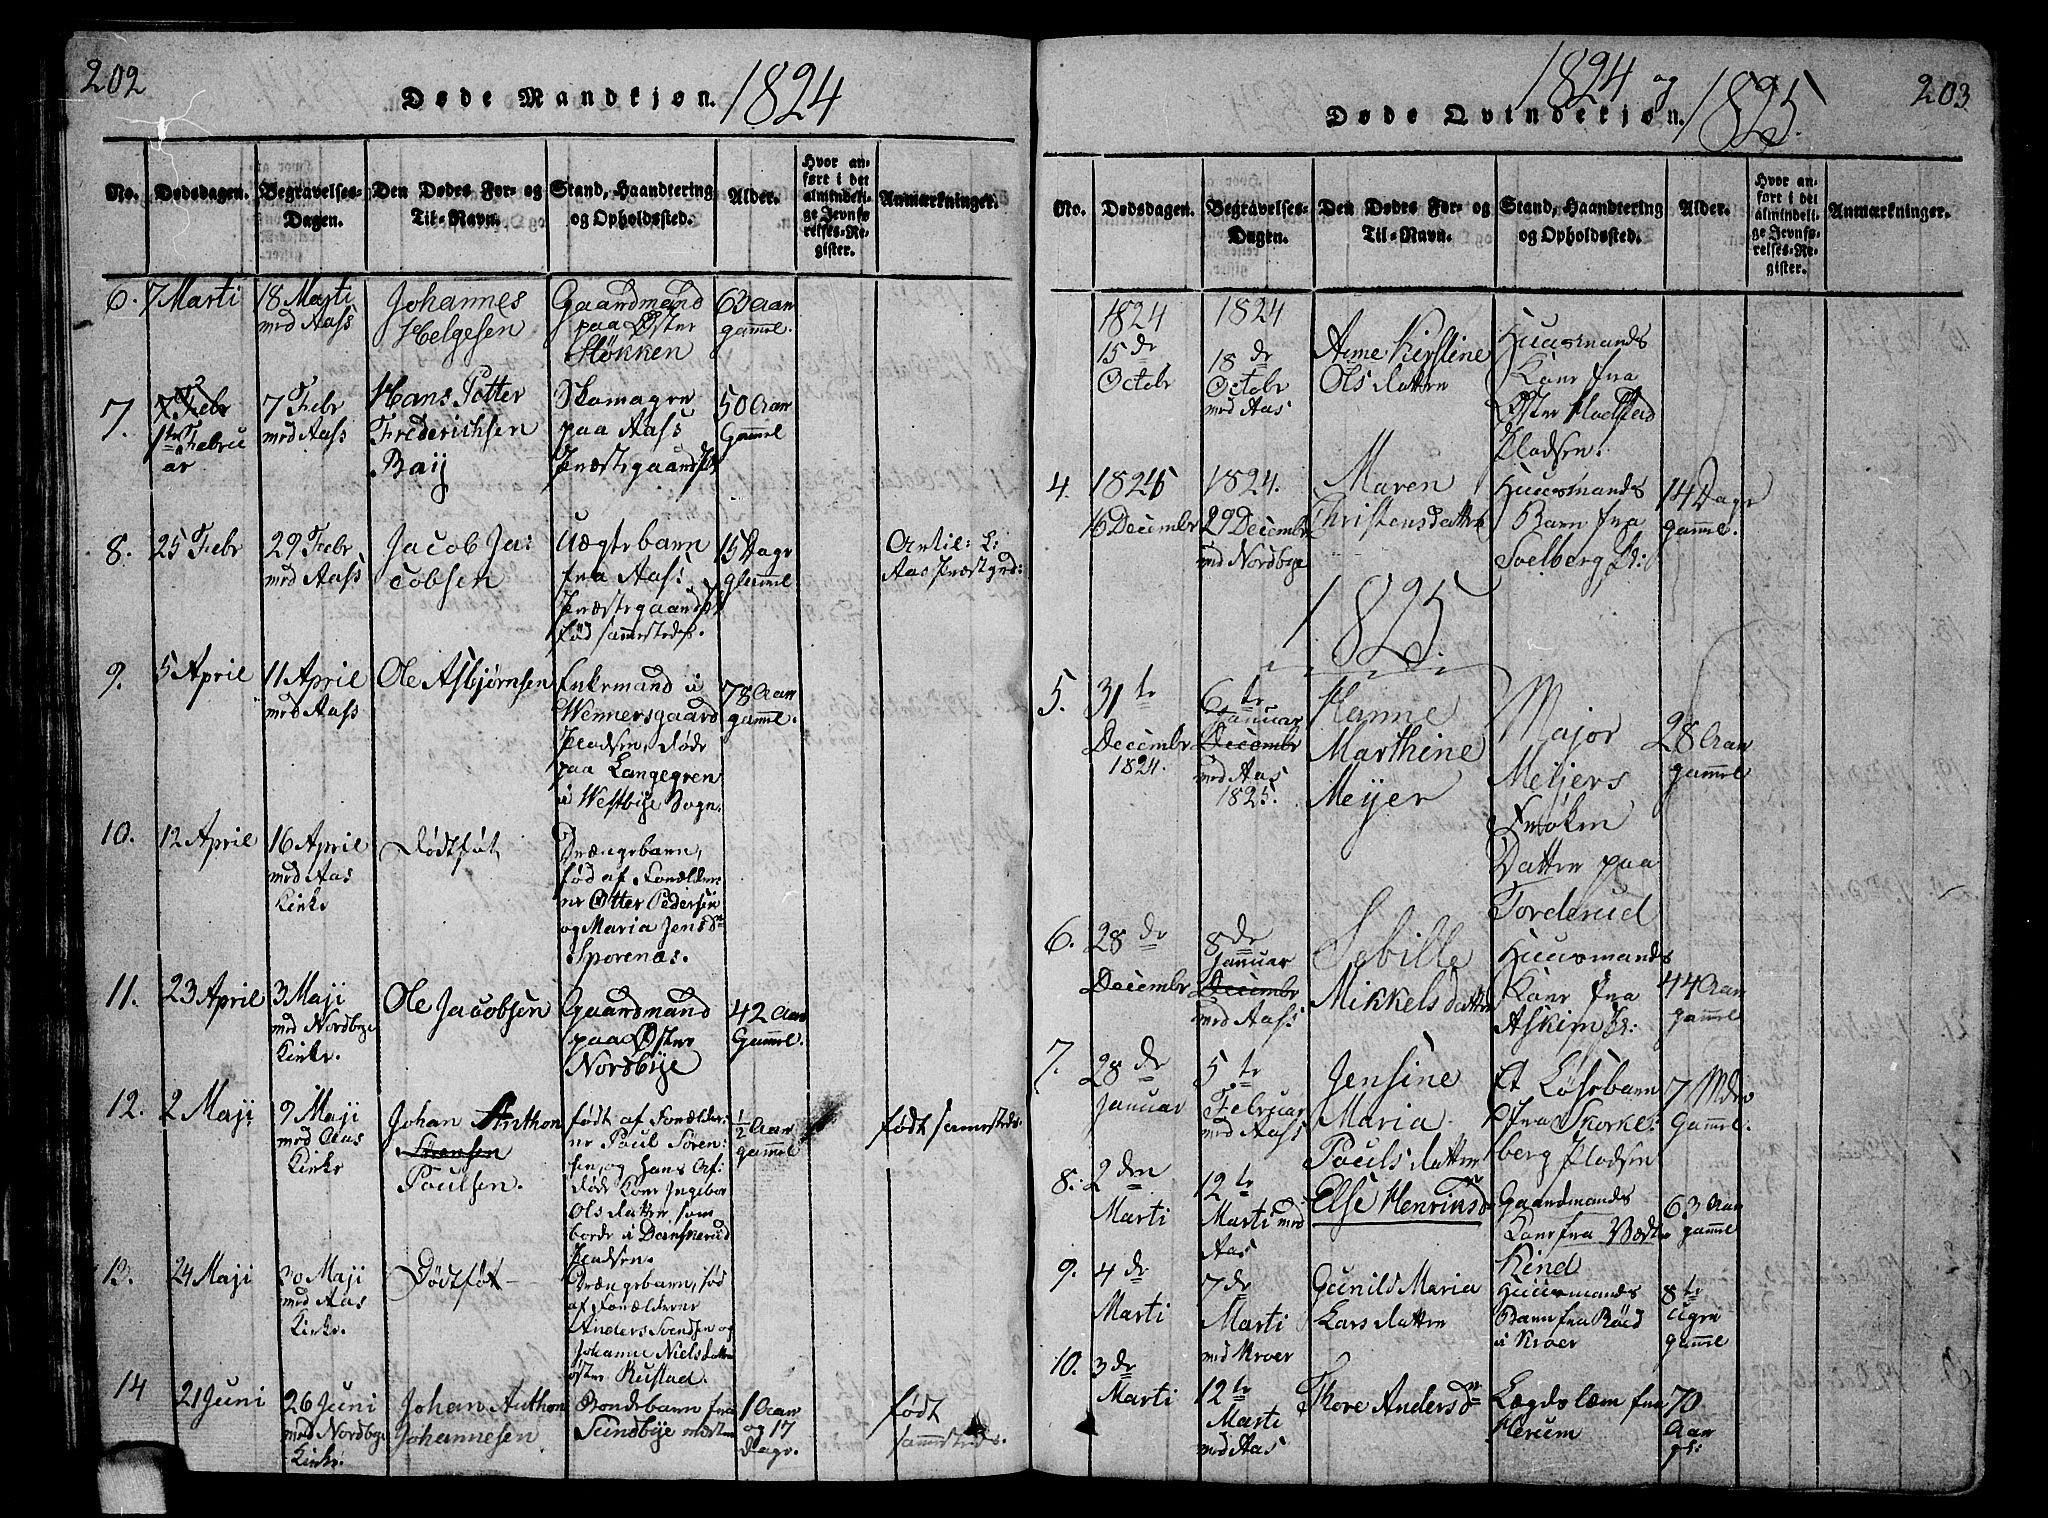 202
Døde Mandkjøn. 1824
No.
Dødsdagen.
Begravelses-Dagen.
Den Dødes For- og Til-Navn.
Stand, Haandtering og Opholdssted.
Alder.
Hvor anført i det almindelige Jevnførelses-Register.
Anmærkninger.
6. 7 Marti
18 Marti
med Aass
Johannes
Helgesen
Gaardmand
paa Øster
Støkken
63 Aar
gamml.
7. 7 Febr
1ste Febru
ar
7 Febr
med Aass
Hans Petter
Frederichsen
Baij
Skomager
paa Aass
Præstegaards
50 Aar
Gamml
8. 25 Febr
29 Febr
med Aass
Jacob Ja:
cobsen
Uægtebarn
fra Aass
Præstegaards
fød sammesteds.
15 Dage
gamml
Aas Præstgrd:
9. 5 April
11 April
med Aass
Ole Asbjørnsen
Enkemand i
Wennersgaard
Pladsen, døde
paa Langegren
i Westbije Sogn.
78 Aar
gamml.
10. 12 April
16 April
med Aas
Kirke
Dødfød
Drængebarn,
fød af Forælder:
ne Otter Pedersen
og Maria Jensdr
Sporenas.
11. 23 April
3 Maji
med Nordbye
Kirke.
Ole Jacobsen
Gaardmand
paa Øster
Nordbye
42 Aar
Gamml.
12. 2 Maji
9 Maji
med Aas
Kirke
Johan Anthon
Sørensen
Poulsen.
født af Forælder:
ne Poul Søren:
sen og hans Af:
døde Kone Ingebor
Olsdatter som
boede i Danskerud
Pladsen.
1/2 Aar
gammel
født sammesteds.
13. 24 Maji
30 Maji
med Aas
Kirke.
Dødfød
Drængebarn, fød
af Forælderne
Anders Svendsen og
Johanne Nielsdatter
øster Rustad.
14 21 Juni
26 Juni
med Nordbye
Kirke.
Johan Anthon
Johannesen
Bondebarn fra
Sundbye
1 Aar
og 17
Dage.
født
sammesteds.
1824 og 1825.
203
Døde Qvindekjøn.
No.
Dødsdagen.
Begravelses-Dagen.
Den Dødes For- og Til-Navn.
Stand, Haandtering og Opholdssted.
Alder.
Hvor anført i det almindelige Jevnførelses-Register.
Anmærkninger.
1824
15 de
Octobr
1824
18 de
Octobr
med Aas
Anne Kirstine
Olsdatter
Huusmands
Kone fra
Øster
Pladsen.
4. 1824
16 Decembr
1824.
29 Decembr
med Nordbye
Maren
Christensdatter
Huusmands
Barn fra
Solberg
14 Dage
gamml.
1825.
5. 31 te
Decembr
1824.
6 te
Januar
Decembr
med Aas
1825.
Hanne
Marthine
Meijer
Major
Meijers
Frøken
Datter paa
Torderud
28 Aar
gamml
6. 28 de
Decembr
8 de
Januar
Decembr
med Aass
Sebille
Mikkelsdatter
Huusmands
Kone fra
Askim
44 Aar
gamml
7. 28 de
Januar
5 te
Februar
med Aass
Jensine
Maria
Poulsdatter
Et Løsebarn
fra Skorke:
berg Pladsen
7 Mdr
Gamml.
8. 2 den
Marti
12 te
Marti med
Aas
Else Henriksdr
Gaardmands
Kone fra
Kind
63 Aar
gamml
9. 4 de
Marti
7 de
Marti
med Kroer
Gunild Maria
Larsdatter
Huusmands
Barn fra Røed
i Kroer
8 te
Ugen
gamml
10. 3 de
Marti
12 te
Marti
med Aas
Thore Andersdr
Lægdslæm fra
Herum
70
Aar
gl: